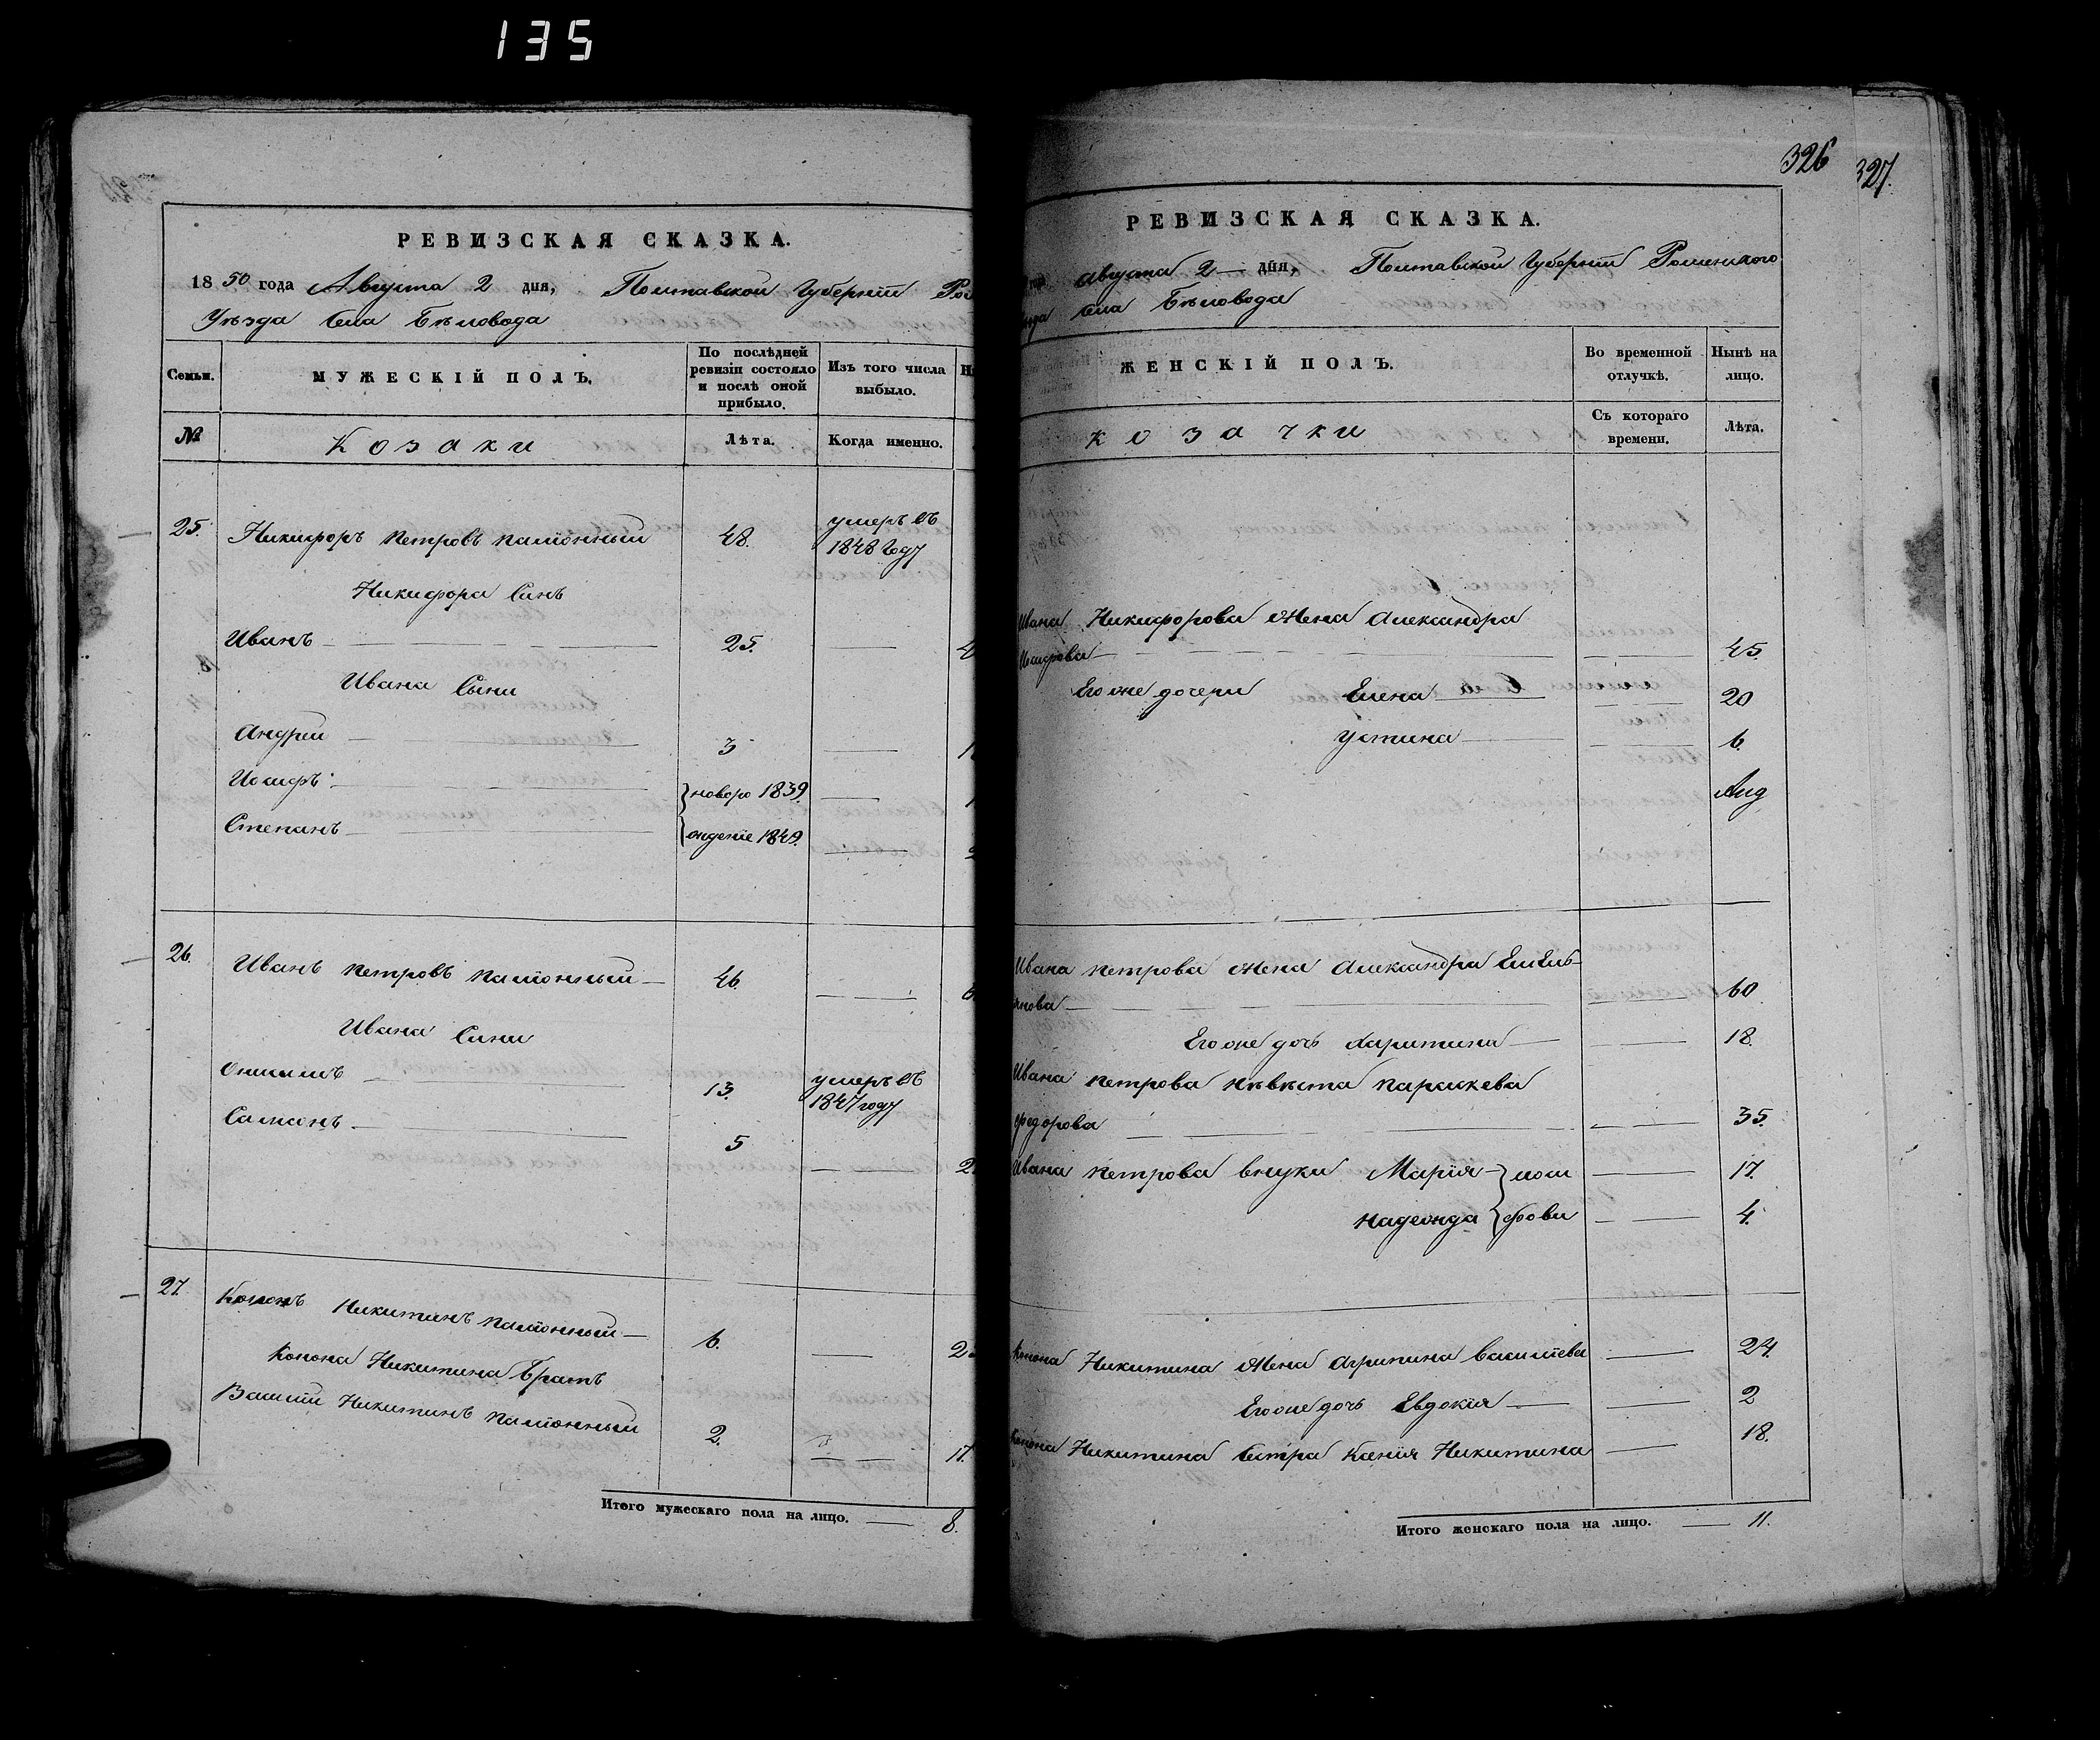 135
РЕВИЗСКАЯ СКАЗКА.
1850 года Августа 2 дня, Полтавской Губерніи Ро
Уѣзда Села Бѣловода
Семьи.
МУЖЕСКІЙ ПОЛЪ.
По послѣдней ревизіи состояло и послѣ оной прибыло.
Изъ того числа выбыло.
№
Козаки
Лѣта.
Когда именно.
25. Никифоръ Петровъ 48. умеръ въ
1848 Году
Никифора Синъ
Иванъ 25.
Ивана Сыни
Андрей 3
Иосифъ новоро 1839.
Степанъ ждение 1849.
26. Иванъ Петровъ 46.
Ивана Сини
13. умеръ въ
1847 году
5
27. Кононъ Никитинъ 6.
Конона Никитина Братъ
Василій Никитинъ 2. 17.
Итого мужескаго пола на лицо. 8.
326
327.
РЕВИЗСКАЯ СКАЗКА.
Августа 2 дня, Полтавской Губерніи Роменского
Села Бѣловода
ЖЕНСКІЙ ПОЛЪ.
Во временной отлучкѣ.
Нынѣ на лицо.
Козачки
Съ котораго времени.
Лѣта.
Ивана Никифорова жена Александра
45.
Егоже дочери Елена 20
Устина 6.
Ивана Петрова жена Александра Емель-
янова 60
Егоже дочь Харитина 18.
Ивана Петрова невѣста Параскева
Федорова 35.
Ивана Петрова внуки Марія иоси 17.
Надежда фови 4.
Конона Никитина жена Агрипина Василіева 24.
Егоже дочь Евдокія 2
Конона Никитина Сестра Ксенія Никитина 18.
Итого женскаго пола на лицо. 11.